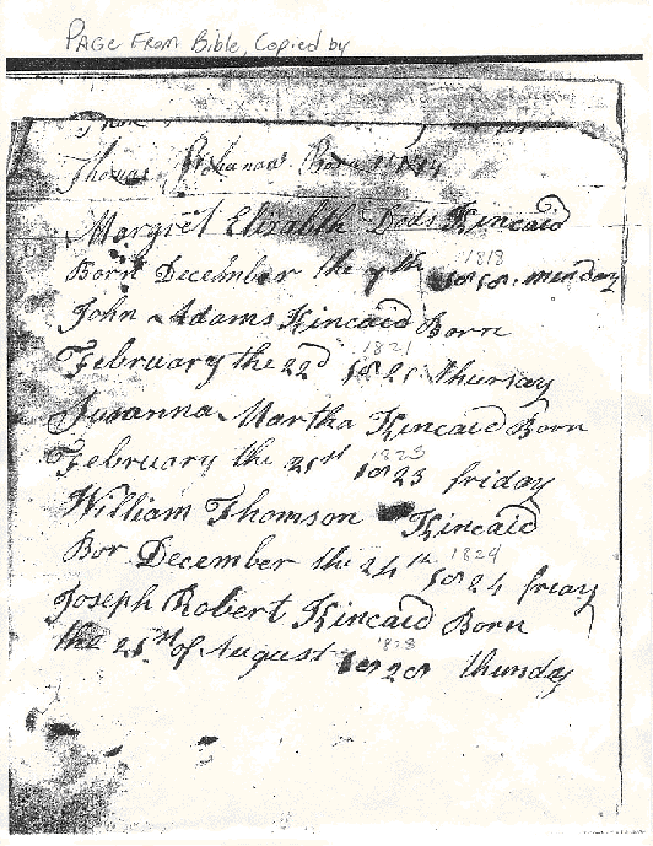 PAGE From Bible, Copied by
Thomas Born
Margret Elizabeth Dods Kincaid
1818
Born December the 7th 1818. munday
John Adams Kincaid Born
1821
February the 22d 1821 thursay
Susanna Martha Kincaid Born
1823
February the 21st 1823 friday
William Thomson Kincaid
1824
Bor December the 24th 1824 friay
Joseph Robert Kincaid Born
1828
the 21st of August 1828 thunday